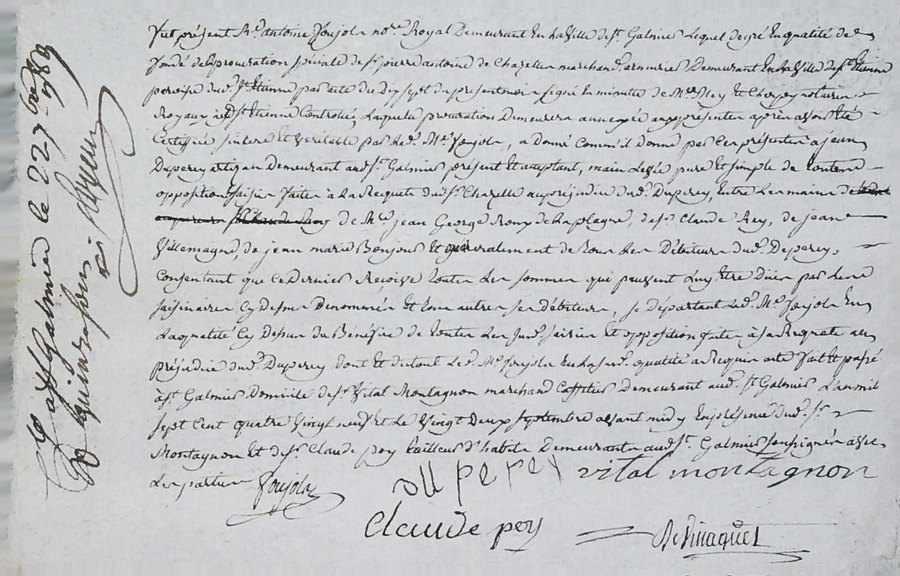 fut présent Me. antoine Joujole no.re Royal Demeurant En la Ville de st. Galmier Lequel de gré En qualité de
fondé de la prouration spéciale de sr. pierre antoine de Chazelle marchand armurier Demeurant En la Ville de st. Etienne
paroisse dud. st. Etienne par acte du dix sept du présent mois signé En minutte de Mes. et notaires
Royaux aud. st. Etienne Controllé Laquelle prouration Demeurera annexée aux présentes après avoir Eté
Certifiée sincere Et Veritable par led. Me. Joujole, a Donné Comm'il Donne par Ces présentes a jean
Duperey artisan Demeurant aud. st. Galmier présent Et acceptant, main Levée pure Et simple de toutes
opposition saisie faite à La Requete dud. sr. Chazelle au préjudice dud. Duperey, Entre Les mains
de Mre. jean George Rony de la plagne, de sr. Claude Rey, de jeanne
Villemagne, de jean marie Bonjour Et généralement de tous Les Débiteurs dud. Duperey,
Consentant que ce Dernier Recoive toutes Les sommes qui peuvent Luy Etre Dües par Les
saisinaires Cy dessus Denommés Et tous autres ses débiteurs, se Départant led. Me. Joujole En
La qualité Cy Dessus du Bénéfice de toutes Les saisies Et opposition faites à sa Requete au
préjudice dud. Duperey, Dont Et du tout led. Me. Joujole En lad. qualité a Requis acte fait Et passé
à st. Galmier Domicile de sr. Vital Montagnon marchand Caffetier Demeurant aud. st. Galmier L'an mil
sept Cent quatre Vingt neuf Et Le Vingt Deux septembre avant midy En présence dud. sr.
Montagnon Et de sr. Claude poy tailleur d'habits Demeurant aud. st. Galmier soussignés avec
Les parties Joujole
duperey vital montagnon
Claude poy
Cle a st. Galmier le 22 7bre 1789
R quinze sous